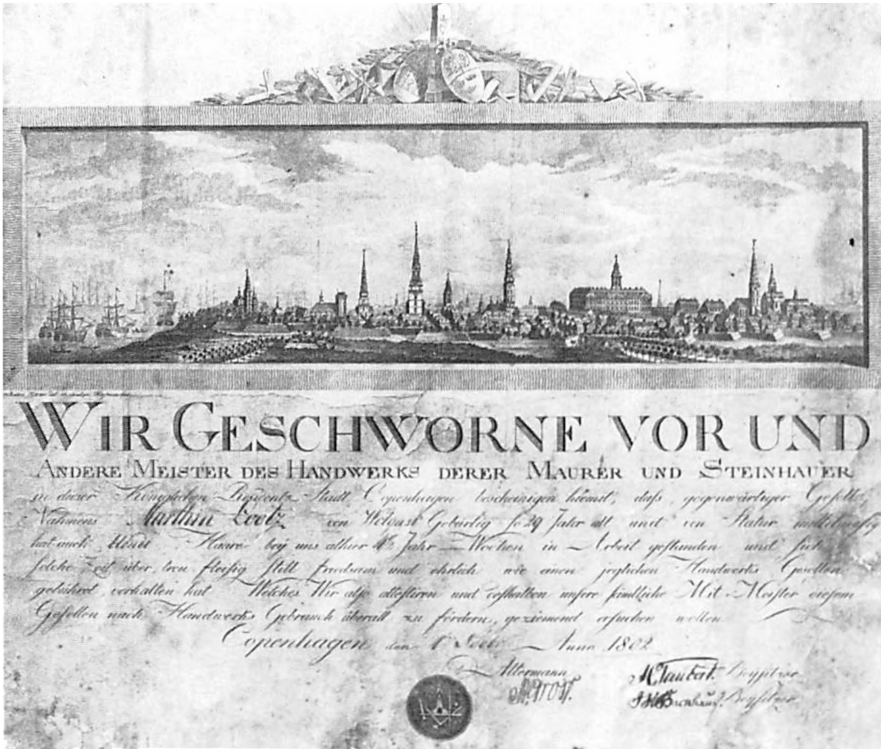 WIR GESCHWORNE VOR UND
ANDERE MEISTER DES HANDWERKS DERER MAURER UND STEINHAUER
in dieser Königlichen Residentz Stadt Copenhagen bescheinigen hiermit, daß gegenwärtiger Gesell
Nahmens Marthin von Wolgast Gebürtig so 29 Jahr alt und von Statur mittelmeßig
hat auch Haare bey uns alhier 4 Jahr Wochen in Arbeit gestanden und sich
solche Zeit über, treu fleißig still friedsam und ehrlich wie einen jeglichen Handwerks Gesellen
gebühret, verhalten hat Welches Wir also attestiren und deshalben unsere sämtliche Mit Meister diesem
Gesellen nach Handwerks Gebrauch überall zu fördern, geziemend ersuchen wollen
Copenhagen den 1 Anno 1802
Altermann
Beysitzer
Beysitzer